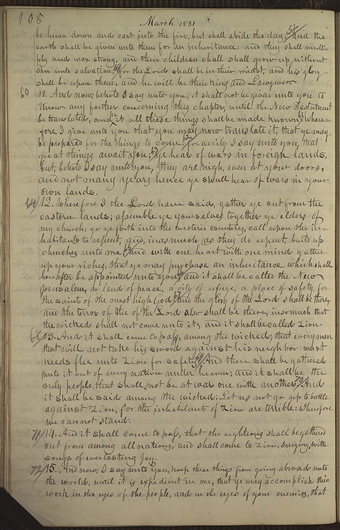 108
March 1831
be hewn down and cast into the fire, but shall abide the day, And the
earth shall be given unto them for an inheritance; and they shall multi-
ply and wax strong, and their children shall grow up, without
sin unto salvation, for the Lord shall be in their midst, and his glory
shall be upon them, and he will be their king and Lawgiver.
11. And now, behold I say unto you, it shall not be given unto you to
know any further concerning this chapter, until the New Testament
be translated, and in it all these things shall be made known. Where-
fore I give unto you that you may now translate it, that ye may
be prepared for the things to come; for verily I say unto you, that
great things await you; Ye hear of wars in foreign lands,
but, behold I say unto you, they are nigh, even at your doors,
and not many years hence ye shall hear of wars in your
own lands.
12. Wherefore I the Lord have said, gather ye out from the
eastern lands, assemble ye yourselves together ye elders of
my church; go ye forth into the western countries, call upon the in-
habitants to repent, and inasmuch as they do repent, build up
churches unto me; and with one heart and with one mind gather
up your riches, that ye may purchase an inheritance which shall
hereafter be appointed unto you, and it shall be called the New
Jerusalem, a land of peace, a city of refuge, a place of safety for
the saints of the most high God; and the glory of the Lord shall be there,
and the terror of the Lord also shall be there, insomuch that
the wicked shall not come unto it; and it shall be called Zion
13. And it shall come to pass, among the wicked, that every man
that will not take his sword against his neighbor must
needs flee unto Zion for safety. And there shall be gathered
unto it out of every nation under heaven; and it shall be the
only people, that shall not be at war one with another. And
it shall be said among the wicked: Let us not go up to battle
against Zion, for the inhabitants of Zion are terrible wherefore
we cannot stand.
71/ 14. And it shall come to pass, that the righteous shall be gathered
out from among all nations, and shall come to Zion singing, with
songs of everlasting joy.
72/ 15. And now, I say unto you, keep these things from going abroad unto
the world, until it is expedient in me, that ye may accomplish this
work in the eyes of the people, and in the eyes of your enemies, that